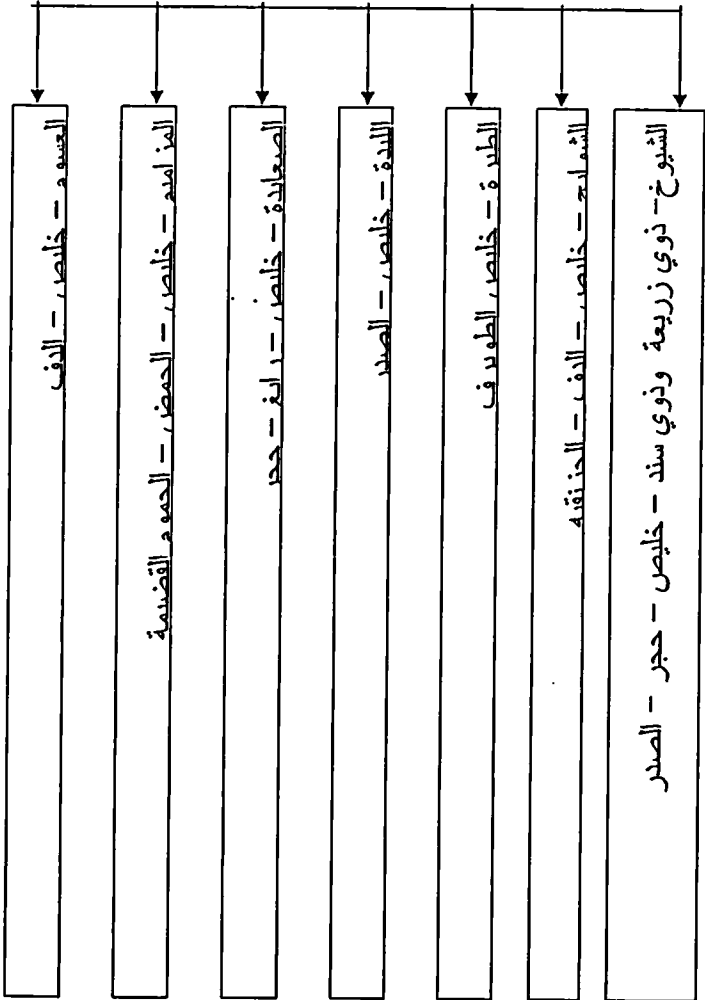 الشيوخ – ذوي زريعة وذوي سند – خليص – حجر – الصدر
الشمارح – خليص – الدف – الجزنقرة
الطيرة – خليص الطويرف
اللبدة – خليص – الصدر
الصعابدة – خليص – رابغ – حجر
المزاميم – خليص – الحمض – الحمود القضيمة
العسوم – خليص – الدف